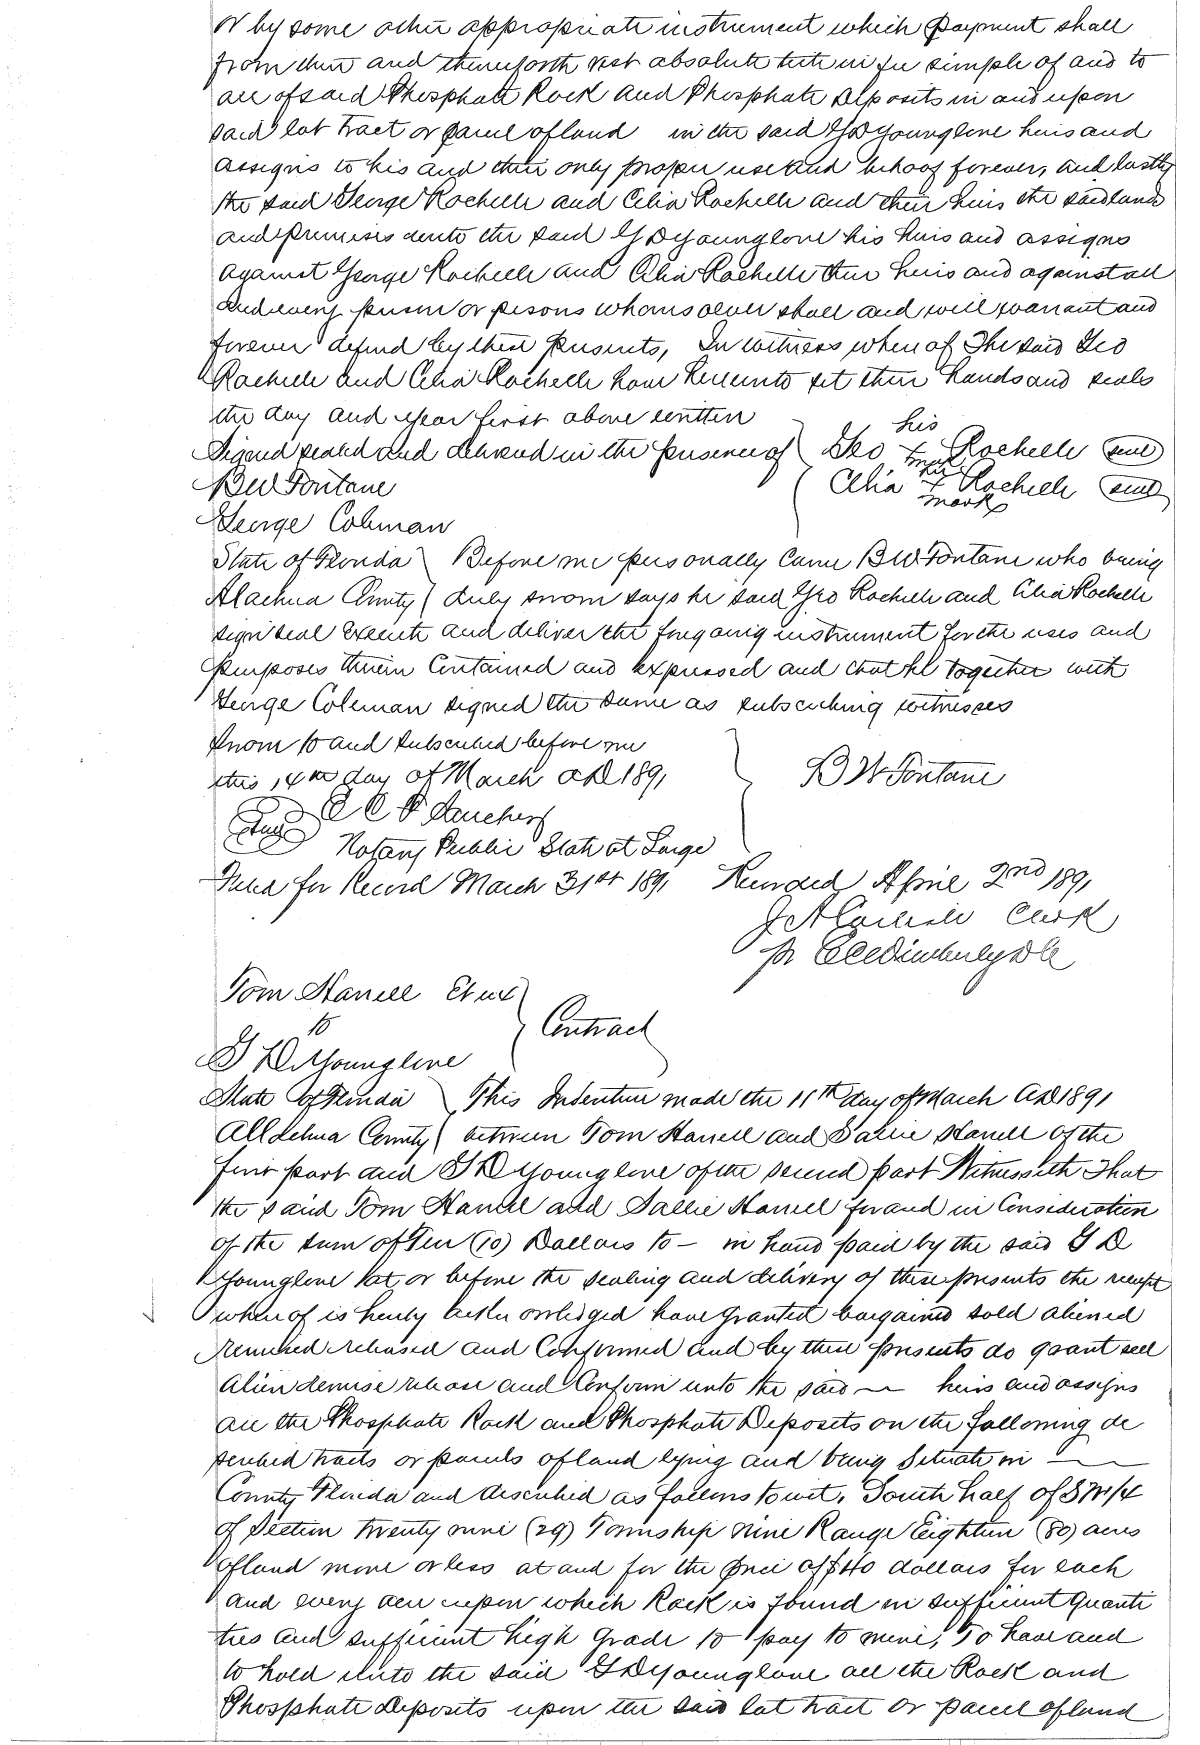 or by some other appropriate instrument which payment shall
from then and thenceforth vest absolute title in fee simple of and to
all of said Phosphate Rock and Phosphate Deposits in and upon
said lot tract or parcel of land in the said G D Younglove heirs and
assigns to his and their only proper use and behoof forever, and lastly
the said George Rochelle and Celia Rochelle and their heirs the said land
and premises unto the said G D Younglove his heirs and assigns
against George Rochelle and Celia Rochelle their heirs and against all
and every person or persons whomsoever shall and will warrant and
forever defend by these presents, In witness whereof The said Geo
Rochelle and Celia Rochelle have hereunto set their hands and seals
the day and year first above written
his
Signed sealed and delivered in the presence of Geo x Rochelle seal
mark
B W Fontane her
Celia x Rochelle seal
mark
George Coleman
State of Florida Before me personally came B W Fontane who being
Alachua County duly sworn says he said Geo Rochelle and Celia Rochelle
sign seal execute and deliver the foregoing instrument for the uses and
purposes therein contained and expressed and that he together with
George Coleman signed the same as subscribing witnesses
Sworn to and subscribed before me
this 14th day of March AD 1891 B W Fontane
E C F
Seal
Notary Public State at Large
Filed for Record March 31st 1891 Recorded April 2nd 1891
J A Carlisle Clerk
pr E C Wimberly D C
Tom Harrell Et ux
to Contract
G D Younglove
State of Florida This Indenture made the 11th day of March AD 1891
Alachua County between Tom Harrell and Sallie Harrell of the
first part and G D Younglove of the second part Witnesseth That
the said Tom Harrell and Sallie Harrell for and in Consideration
of the sum of Ten (10) Dollars to — in hand paid by the said G D
Younglove at or before the sealing and delivery of these presents the receipt
whereof is hereby acknowledged have granted bargained sold aliened
remised released and Confirmed and by these presents do grant sell
alien demise release and Confirm unto the said — heirs and assigns
all the Phosphate Rock and Phosphate Deposits on the following de
scribed tracts or parcels of land lying and being Situate in —
County Florida and described as follows to wit, South half of S W 1/4
of Section twenty nine (29) Township nine Range Eighteen (80) acres
of land more or less at and for the price of $40 dollars for each
and every acre upon which Rock is found in sufficient Quanti
ties and sufficient high grade to pay to mine, To have and
to hold unto the said G D Younglove all the Rock and
Phosphate Deposits upon the said lot tract or parcel of land